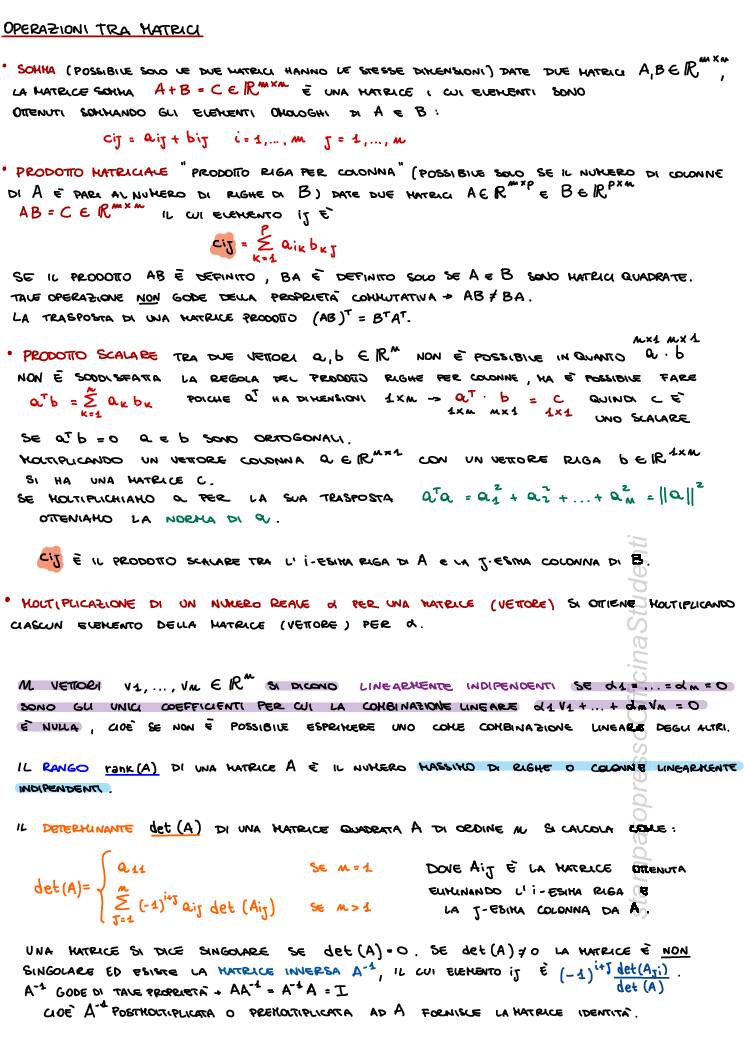 OPERAZIONI TRA MATRICI
• SOMMA (POSSIBILE SOLO LE DUE MATRICI HANNO LE STESSE DIMENSIONI) DATE DUE MATRICI A,B ∈ ℝ^{m×n},
LA MATRICE SOMMA A+B = C ∈ ℝ^{m×n} È UNA MATRICE I CUI ELEMENTI SONO
OTTENUTI SOMMANDO GLI ELEMENTI OMOLOGHI DI A E B :
cij = aij + bij i = 1,..., m j = 1,..., n
• PRODOTTO MATRICIALE "PRODOTTO RIGA PER COLONNA" (POSSIBILE SOLO SE IL NUMERO DI COLONNE
DI A È PARI AL NUMERO DI RIGHE DI B) DATE DUE MATRICI A ∈ ℝ^{m×p} E B ∈ ℝ^{p×n}
AB = C ∈ ℝ^{m×n} IL CUI ELEMENTO ij È
cij = ∑_{k=1}^{p} aik bkj
SE IL PRODOTTO AB È DEFINITO, BA È DEFINITO SOLO SE A E B SONO MATRICI QUADRATE.
TALE OPERAZIONE NON GODE DELLA PROPRIETÀ COMMUTATIVA → AB ≠ BA.
LA TRASPOSTA DI UNA MATRICE PRODOTTO (AB)^T = B^T A^T.
n×1 n×1
• PRODOTTO SCALARE TRA DUE VETTORI a,b ∈ ℝ^n NON È POSSIBILE IN QUANTO a · b
NON È SODDISFATTA LA REGOLA DEL PRODOTTO RIGHE PER COLONNE, MA È POSSIBILE FARE
a^T b = ∑_{k=1}^{n} ak bk POICHÈ a^T HA DIMENSIONI 1×n → a^T · b = c QUINDI C È
1×n n×1 1×1 UNO SCALARE
SE a^T b = 0 a E b SONO ORTOGONALI.
MOLTIPLICANDO UN VETTORE COLONNA a ∈ ℝ^{n×1} CON UN VETTORE RIGA b ∈ ℝ^{1×n}
SI HA UNA MATRICE C.
SE MOLTIPLICHIAMO a PER LA SUA TRASPOSTA a^T a = a_1^2 + a_2^2 + ... + a_n^2 = ||a||^2
OTTENIAMO LA NORMA DI a.
cij È IL PRODOTTO SCALARE TRA L' i-ESIMA RIGA DI A E LA j-ESIMA COLONNA DI B.
• MOLTIPLICAZIONE DI UN NUMERO REALE α PER UNA MATRICE (VETTORE) SI OTTIENE MOLTIPLICANDO
CIASCUN ELEMENTO DELLA MATRICE (VETTORE) PER α.
M VETTORI v1,..., vm ∈ ℝ^n SI DICONO LINEARMENTE INDIPENDENTI SE α1 = ... = αm = 0
SONO GLI UNICI COEFFICIENTI PER CUI LA COMBINAZIONE LINEARE α1 v1 + ... + αm vm = 0
È NULLA, CIOÈ SE NON È POSSIBILE ESPRIMERE UNO COME COMBINAZIONE LINEARE DEGLI ALTRI.
IL RANGO rank(A) DI UNA MATRICE A È IL NUMERO MASSIMO DI RIGHE O COLONNE LINEARMENTE
INDIPENDENTI.
IL DETERMINANTE det (A) DI UNA MATRICE QUADRATA A DI ORDINE n SI CALCOLA COME :
a11 SE n = 1 DOVE Aij È LA MATRICE OTTENUTA
det(A)= { ELIMINANDO L' i-ESIMA RIGA E
∑_{j=1}^{n} (-1)^{i+j} aij det (Aij) SE n > 1 LA j-ESIMA COLONNA DA A.
UNA MATRICE SI DICE SINGOLARE SE det (A) = 0. SE det (A) ≠ 0 LA MATRICE È NON
SINGOLARE ED ESISTE LA MATRICE INVERSA A^{-1}, IL CUI ELEMENTO ij È (-1)^{i+j} det(Aji) / det (A).
A^{-1} GODE DI TALE PROPRIETÀ → AA^{-1} = A^{-1}A = I
CIOÈ A^{-1} POSTMOLTIPLICATA O PREMOLTIPLICATA AD A FORNISCE LA MATRICE IDENTITÀ.
stampato presso OfficinaStudenti